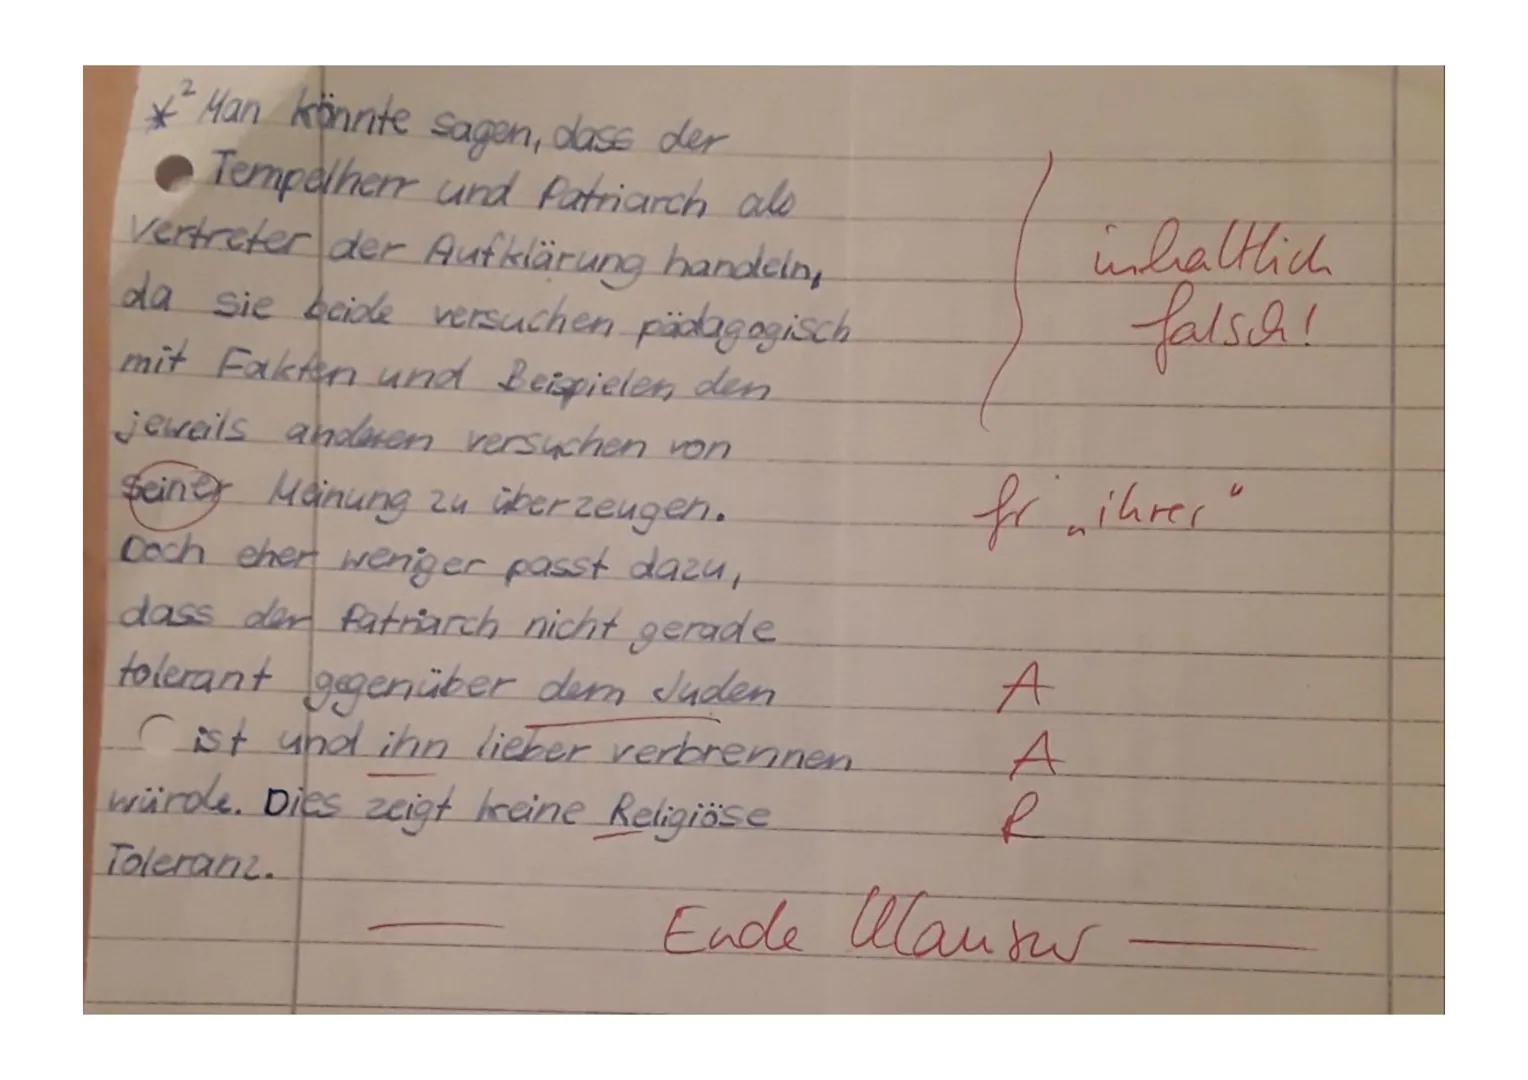 *² Man könnte sagen, dass der
Tempelherr und Patriarch als
Vertreter der Aufklärung handeln,
inhaltlich
da sie beide versuchen pädagogisch
falsch!
mit Fakten und Beispielen, den
jeweils anderen versuchen von
seiner Meinung zu überzeugen.
fr „ihrer“
Doch eher weniger passt dazu,
dass der Patriarch nicht gerade
tolerant gegenüber dem Juden
A
ist und ihn lieber verbrennen
A
würde. Dies zeigt keine Religiöse
R
Toleranz.
Ende Klausur